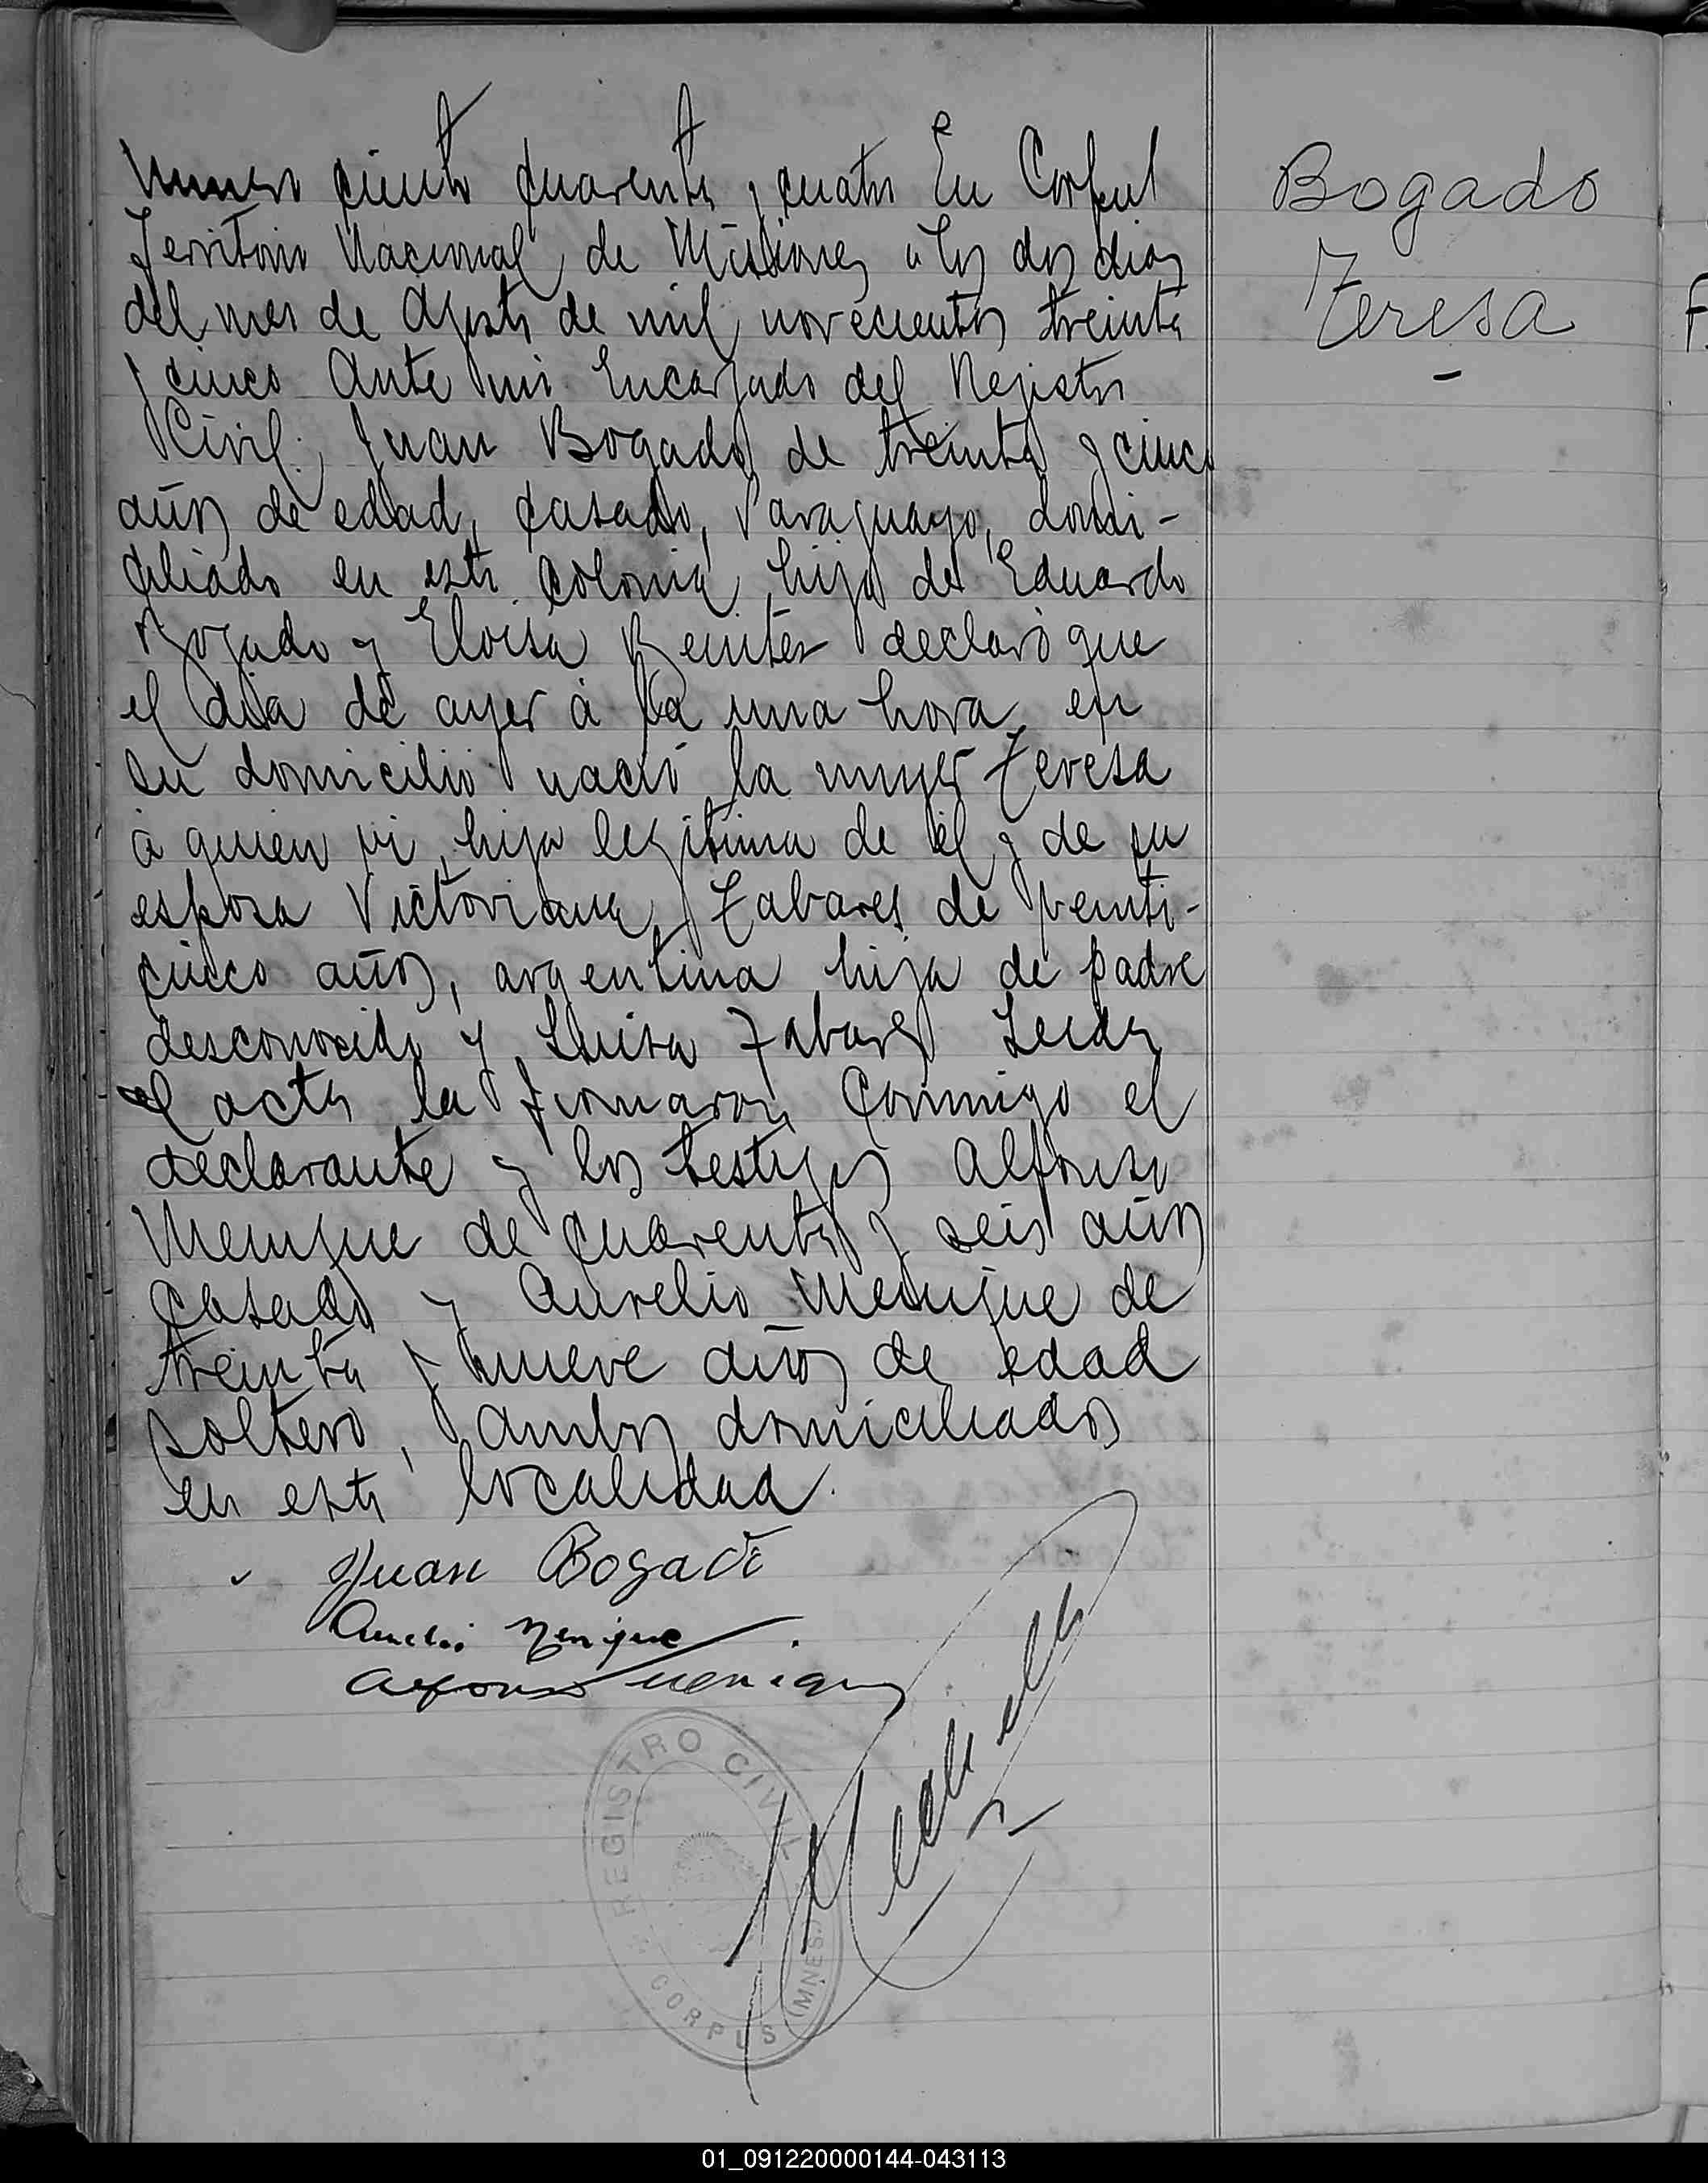 Numero ciento cuarenta y cuatro En Corpus
Territorio Nacional de Misiones a los dos dias
del mes de Agosto de mil novecientos treinta
y cinco Ante mi Encargado del Registro
Civil, Juan Bogado de treinta y cinco
años de edad, casado, Paraguayo, domi-
ciliado en esta colonia hijo de Eduardo
Bogado y Eloisa Benites declaró que
el dia de ayer á la una hora en
su domicilio nació la mujer Teresa
á quien vi, hija legitima de él y de su
esposa Victoriana Tabares de veinti-
cinco años, argentina hija de padre
desconocido y Luisa Tabares Leida
el acta la firmaron conmigo el
declarante y los testigos Alfonso
Menique de cuarenta y seis años
casado y Aurelio Menique de
treinta y nueve años de edad
soltero, ambos domiciliados
en esta localidad.
Juan Bogado
Aurelio Menique
Alfonso Menique
REGISTRO CIVIL
CORPUS (MNES.)
Bogado
Teresa
01_091220000144-043113